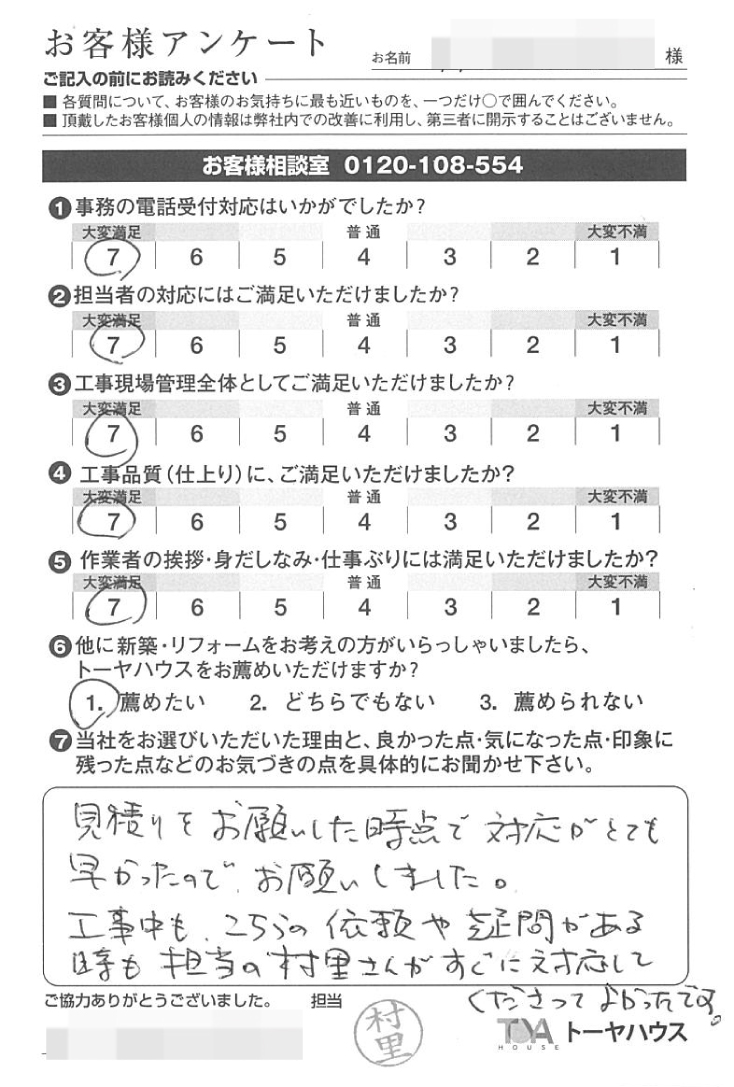 お客様アンケート
お名前 様
ご記入の前にお読みください
■ 各質問について、お客様のお気持ちに最も近いものを、一つだけ○で囲んでください。
■ 頂戴したお客様個人の情報は弊社内での改善に利用し、第三者に開示することはございません。
お客様相談室 0120-108-554
❶ 事務の電話受付対応はいかがでしたか?
大変満足 普通 大変不満
7 6 5 4 3 2 1
❷ 担当者の対応にはご満足いただけましたか?
大変満足 普通 大変不満
7 6 5 4 3 2 1
❸ 工事現場管理全体としてご満足いただけましたか?
大変満足 普通 大変不満
7 6 5 4 3 2 1
❹ 工事品質(仕上り)に、ご満足いただけましたか?
大変満足 普通 大変不満
7 6 5 4 3 2 1
❺ 作業者の挨拶・身だしなみ・仕事ぶりには満足いただけましたか?
大変満足 普通 大変不満
7 6 5 4 3 2 1
❻ 他に新築・リフォームをお考えの方がいらっしゃいましたら、
トーヤハウスをお薦めいただけますか?
1. 薦めたい 2. どちらでもない 3. 薦められない
❼ 当社をお選びいただいた理由と、良かった点・気になった点・印象に
残った点などのお気づきの点を具体的にお聞かせ下さい。
見積りをお願いした時点で対応がとても
早かったので、お願いしました。
工事中も、こちらの依頼や疑問がある
時も担当の村里さんがすぐに対応して
くださってよかったです。
ご協力ありがとうございました。 担当
村里
TOYA HOUSE トーヤハウス